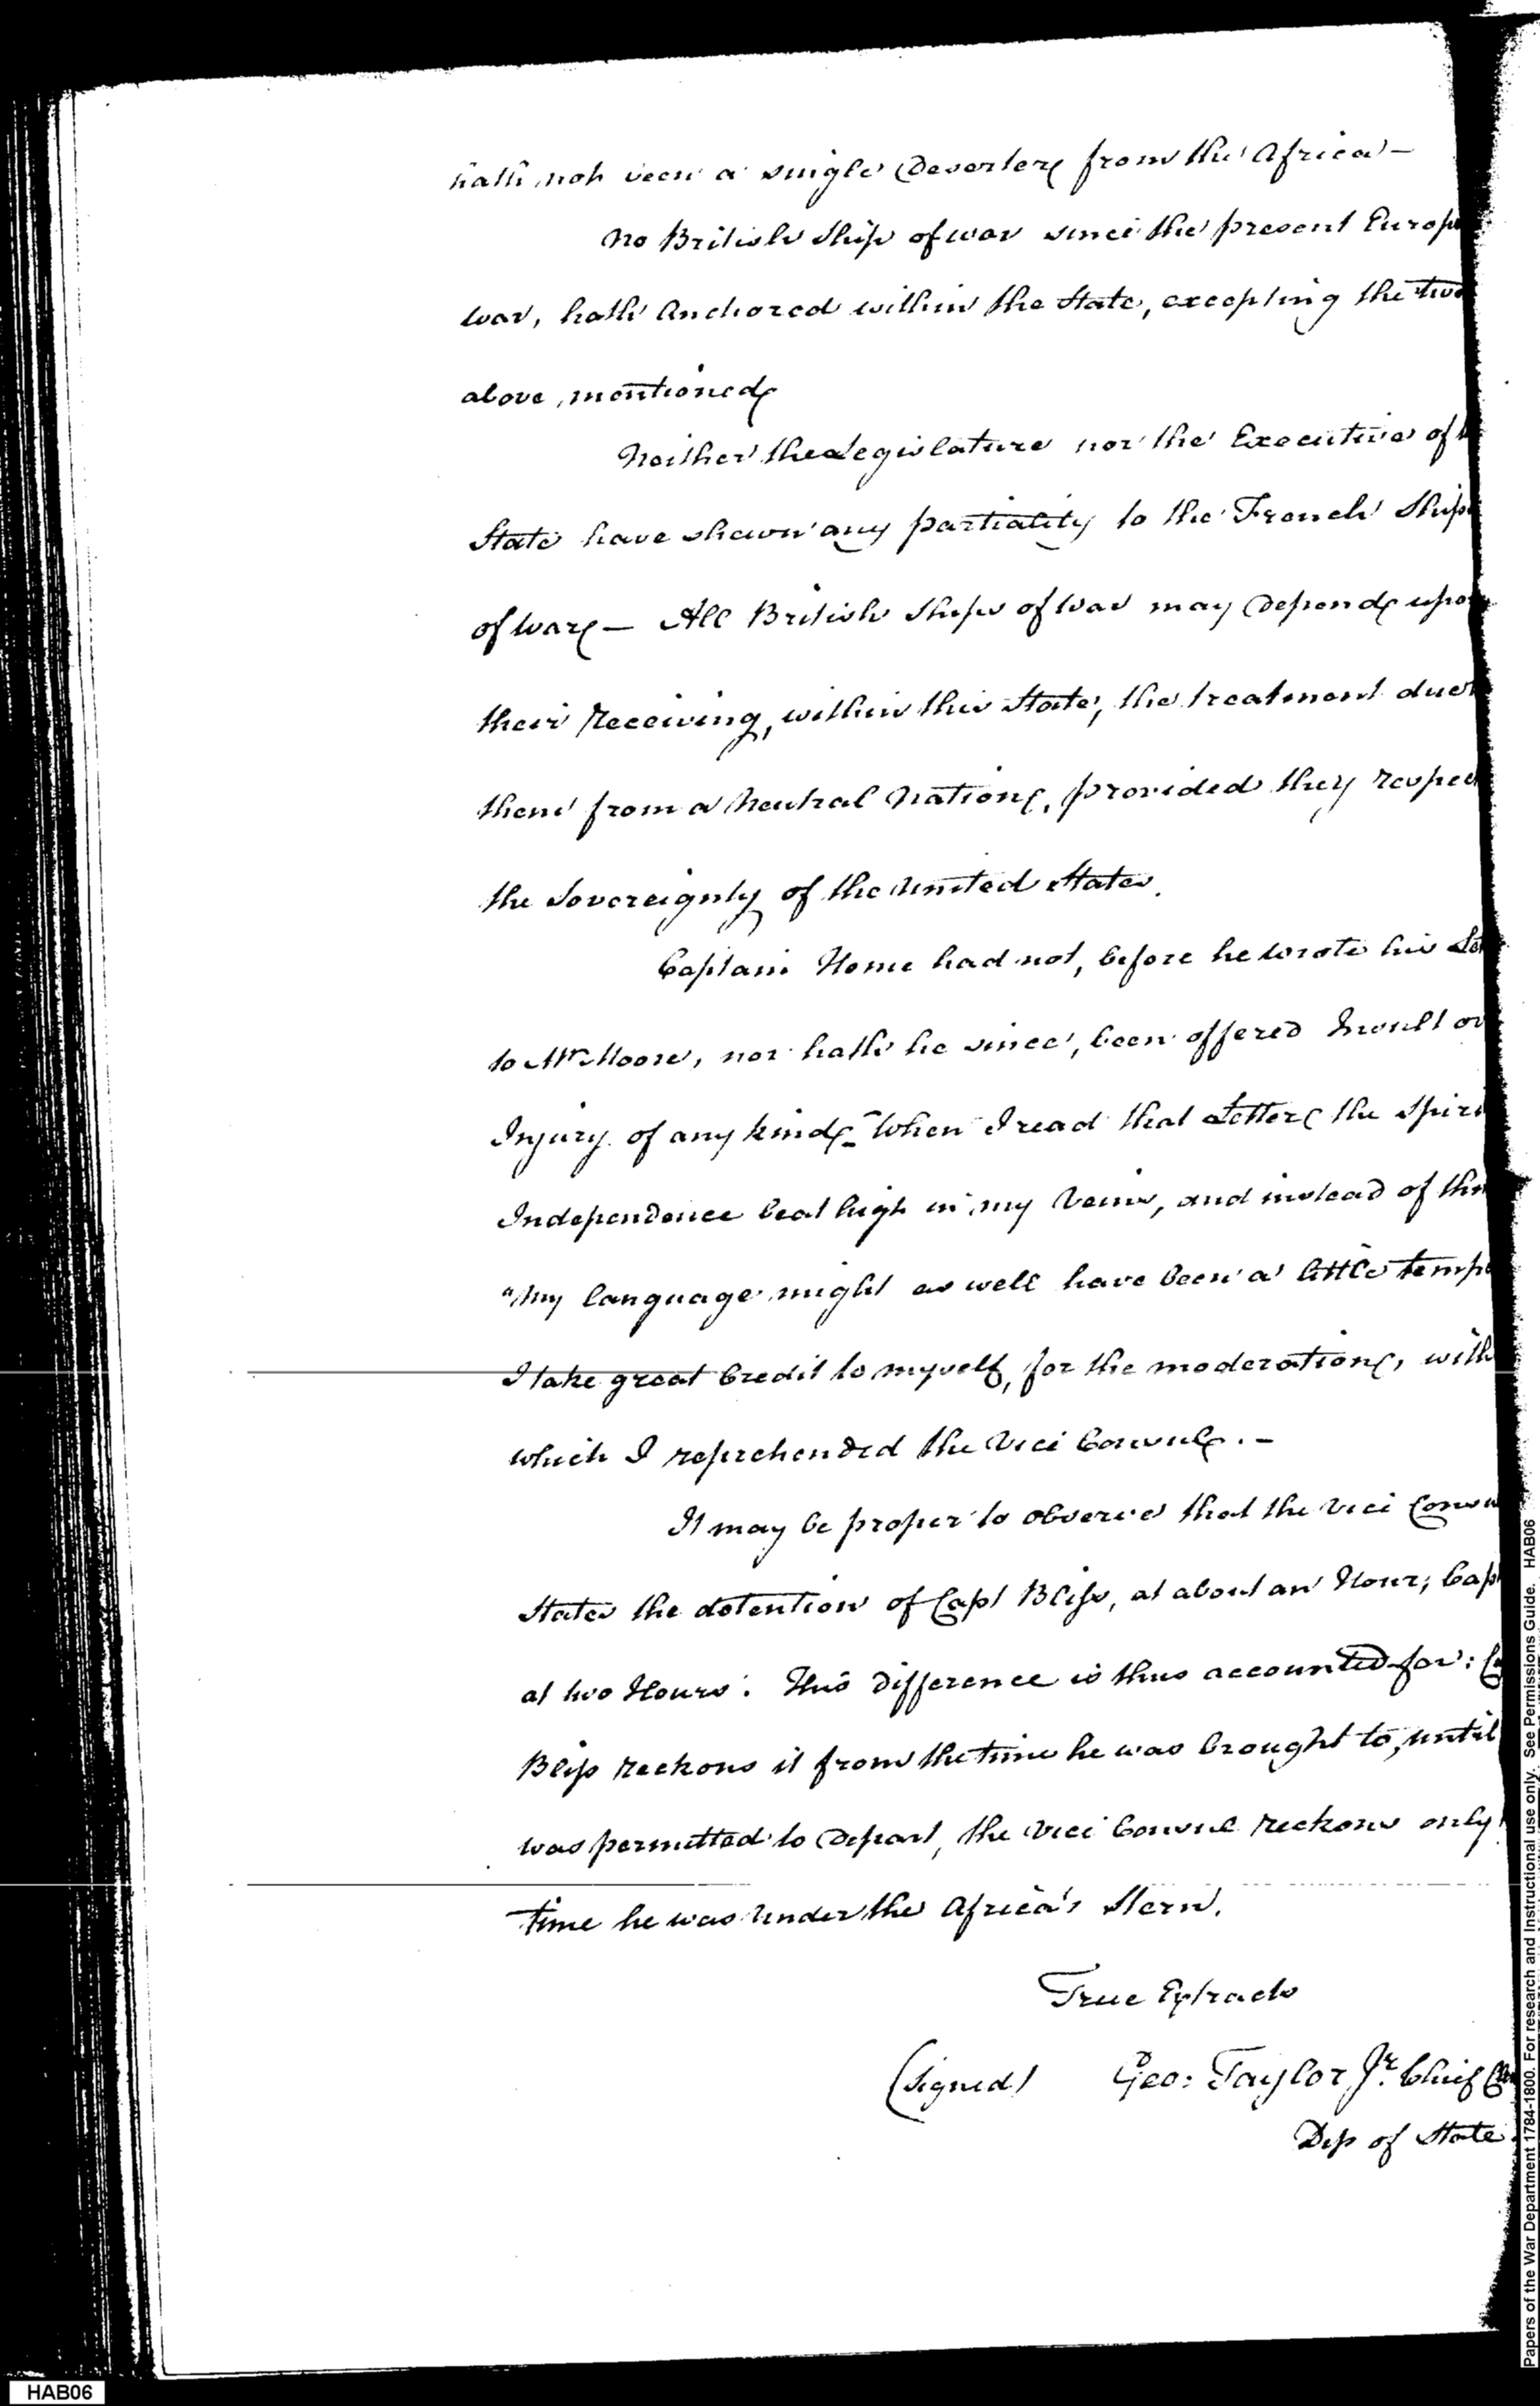 hath not been a single Deserter from the Africa —
No British Ship of war since the present Europe
war, hath Anchored within the State, excepting the two
above mentioned
Neither the Legislature nor the Executive of
State have shewn any partiality to the French Ships
of war — All British Ships of War may Depend upon
their receiving, within this State, the treatment due
them from a Neutral Nation, provided they respec
the Sovereignty of the United States.
Captain Home had not, before he wrote his Let
to Mr Moore, nor hath he since, been offered Insult or
Injury of any kind — When I read that Letter the Spiri
Independence beat high in my Veins, and instead of thin
"My language might as well have been a little temp
I take great Credit to myself, for the moderation, with
which I reprehended the Vice Consul. —
It may be proper to observe that the Vice Consu
States the detention of Capt Bliss, at about an Hour; Cap
at two Hours. This difference is thus accounted for: Ca
Bliss reckons it from the time he was brought to, until
was permitted to Depart, the Vice Consul reckons only
time he was under the Africa's Stern.
True Extracts
(Signed) Geo: Taylor Jr. Chief
Dep of State
HAB06
Papers of the War Department 1784-1800. For research and Instructional use only. See Permissions Guide. HAB06